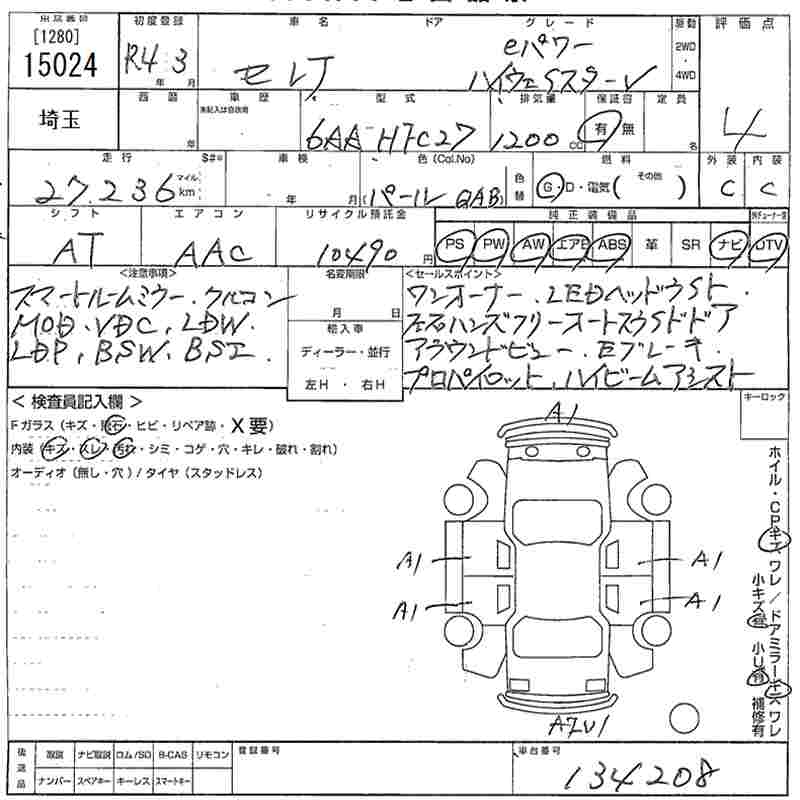 東京番号 初度登録 車名 ドア グレード 駆動 評価点
[1280]
15024
R4 年 3 月
セレナ
eパワー
ハイウェイスターV
2WD
・
4WD
4
埼玉
西暦 車歴 型式 排気量 保証書 定員
未記入は自家用
年
6AA-HFC27
1200 cc
有・無
名
走行 S#* 車検 色(Col.No) 色替 燃料 外装 内装
27,236 マイル km
年 月
パール QAB
G・D・電気( その他 )
C C
シフト エアコン リサイクル預託金 純正装備品
AT AAC 10490 円
PS PW AW エアB ABS 革 SR ナビ DTV
<注意事項> 名変期限 <セールスポイント>
スマートルームミラー.クルコン
MOD.VDC,LDW.
LDP,BSW.BSI.
月 日
輸入車
ディーラー・並行
左H・右H
ワンオーナー.LEDヘッドライト.
両側ハンズフリーオートスライドドア
アラウンドビュー.Eブレーキ.
プロパイロット.ハイビームアシスト
<検査員記入欄>
キーロック
Fガラス(キズ・飛石・ヒビ・リペア跡・X要)
内装(キズ・スレ・汚れ・シミ・コゲ・穴・キレ・破れ・割れ)
オーディオ(無し・穴)/タイヤ(スタッドレス)
A1
A1 A1
A1 A1
A2U1
ホイル・CPキズ ワレ / ドアミラーキズ ワレ
小キズ有 小U有 補修有
後送品 取説 ナビ取説 ロム/SD B-CAS リモコン 登録番号 車台番号
ナンバー スペアキー キーレス スマートキー
134208